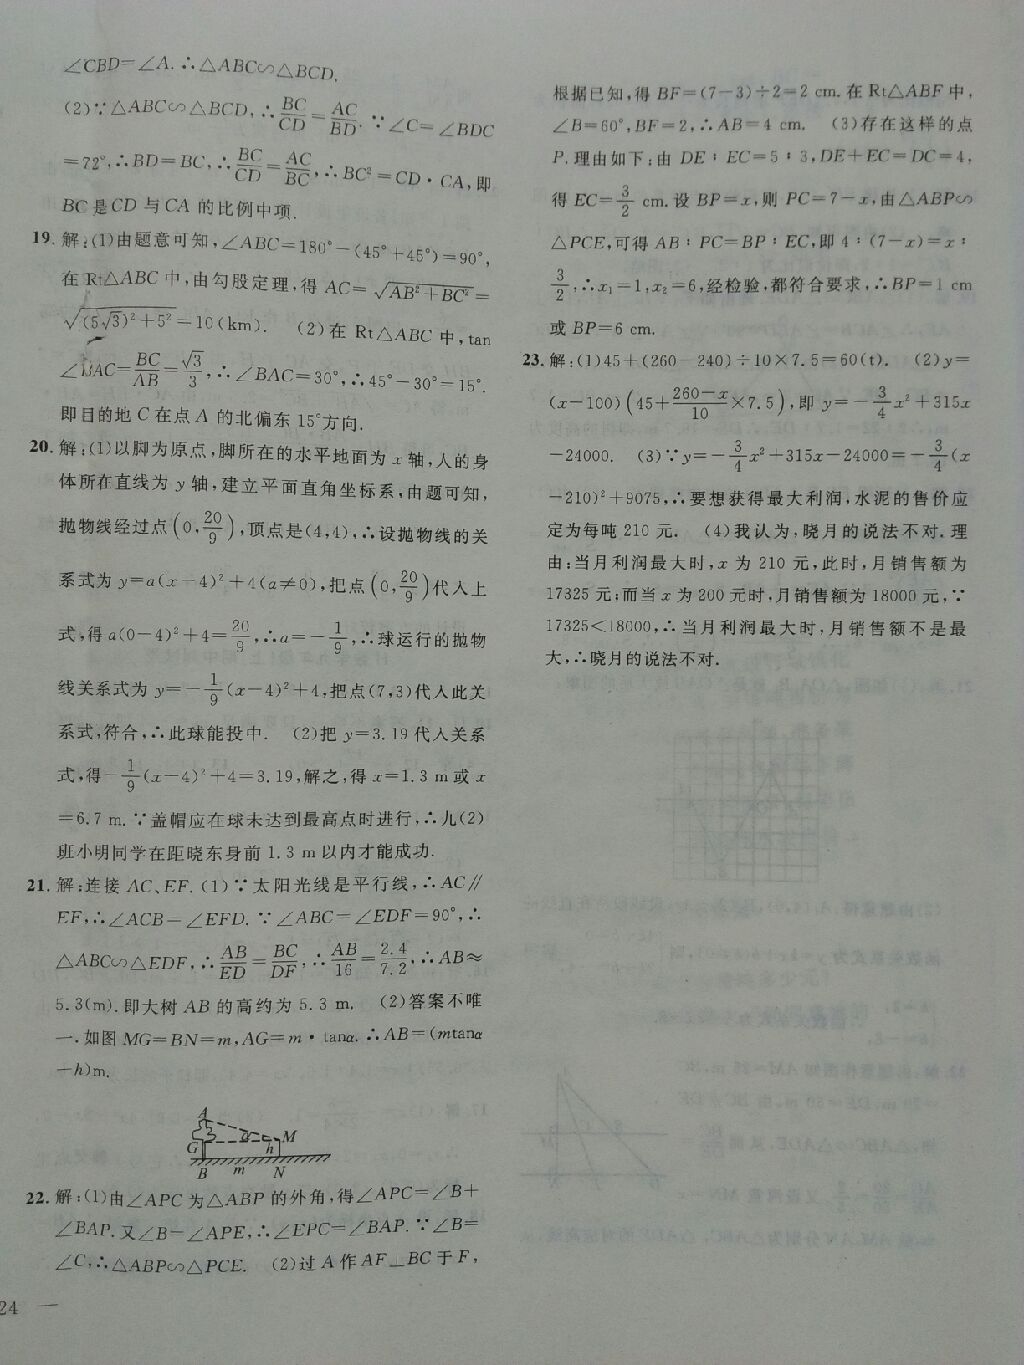 ∠CBD=∠A.∴△ABC∽△BCD.
(2)∵△ABC∽△BCD,∴BC/CD=AC/BD.∵∠C=∠BDC
=72°,∴BD=BC,∴BC/CD=AC/BC,∴BC²=CD·CA,即
BC是CD与CA的比例中项.
19.解:(1)由题意可知,∠ABC=180°-(45°+45°)=90°,
在Rt△ABC中,由勾股定理,得AC=√(AB²+BC²)=
√((5√3)²+5²)=10(km). (2)在Rt△ABC中,tan
∠BAC=BC/AB=√3/3,∴∠BAC=30°,∴45°-30°=15°.
即目的地C在点A的北偏东15°方向.
20.解:(1)以脚为原点,脚所在的水平地面为x轴,人的身
体所在直线为y轴,建立平面直角坐标系,由题可知,
抛物线经过点(0,20/9),顶点是(4,4),∴设抛物线的关
系式为y=a(x-4)²+4(a≠0),把点(0,20/9)代入上
式,得a(0-4)²+4=20/9,∴a=-1/9,∴球运行的抛物
线关系式为y=-1/9(x-4)²+4,把点(7,3)代入此关
系式,符合,∴此球能投中. (2)把y=3.19代入关系
式,得-1/9(x-4)²+4=3.19,解之,得x=1.3 m或x
=6.7 m.∵盖帽应在球未达到最高点时进行,∴九(2)
班小明同学在距晓东身前1.3 m以内才能成功.
21.解:连接AC、EF.(1)∵太阳光线是平行线,∴AC∥
EF,∴∠ACB=∠EFD.∵∠ABC=∠EDF=90°,∴
△ABC∽△EDF,∴AB/ED=BC/DF,∴AB/16=2.4/7.2,∴AB≈
5.3(m).即大树AB的高约为5.3 m. (2)答案不唯
一.如图MG=BN=m,AG=m·tanα.∴AB=(mtanα
-h)m.
A
G
α
M
h
B
m
N
22.解:(1)由∠APC为△ABP的外角,得∠APC=∠B+
∠BAP.又∠B=∠APE,∴∠EPC=∠BAP.∵∠B=
∠C,∴△ABP∽△PCE. (2)过A作AF⊥BC于F,
24 —
根据已知,得BF=(7-3)÷2=2 cm.在Rt△ABF中,
∠B=60°,BF=2,∴AB=4 cm. (3)存在这样的点
P.理由如下:由DE∶EC=5∶3,DE+EC=DC=4,
得EC=3/2 cm.设BP=x,则PC=7-x,由△ABP∽
△PCE,可得AB∶PC=BP∶EC,即4∶(7-x)=x∶
3/2,∴x₁=1,x₂=6,经检验,都符合要求,∴BP=1 cm
或BP=6 cm.
23.解:(1)45+(260-240)÷10×7.5=60(t). (2)y=
(x-100)(45+(260-x)/10×7.5),即y=-3/4x²+315x
-24000. (3)∵y=-3/4x²+315x-24000=-3/4(x
-210)²+9075,∴要想获得最大利润,水泥的售价应
定为每吨210元. (4)我认为,晓月的说法不对.理
由:当月利润最大时,x为210元,此时,月销售额为
17325元;而当x为200元时,月销售额为18000元,∵
17325<18000,∴当月利润最大时,月销售额不是最
大,∴晓月的说法不对.